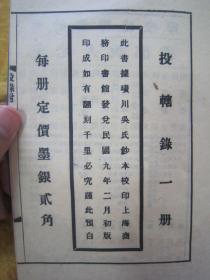 投轄錄一冊
此書據璜川吳氏鈔本校印上海商
務印書館發兌民國九年二月初版
印成如有翻刻千里必究謹此預白
每冊定價墨銀貳角